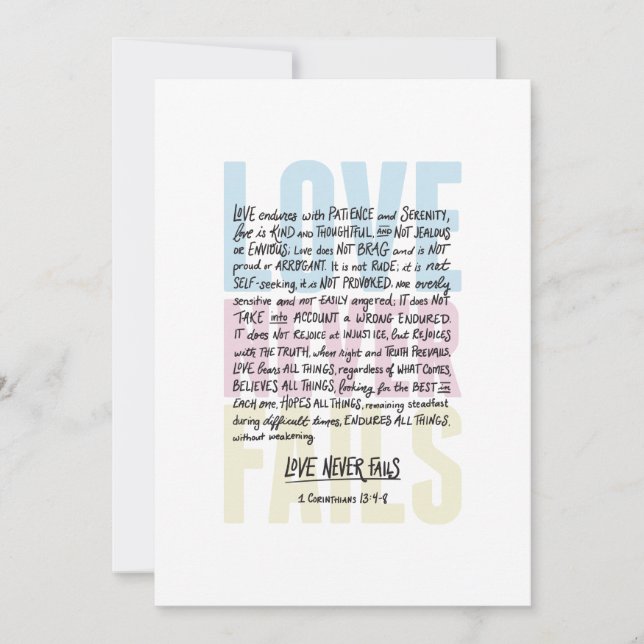 LOVE
NEVER
FAILS
LOVE endures with PATIENCE and SERENITY,
love is KIND AND THOUGHTFUL, AND NOT JEALOUS
OR ENVIOUS; Love does NOT BRAG and is NOT
proud or ARROGANT. It is not RUDE; it is not
SELF-seeking, it is NOT PROVOKED, Nor overly
sensitive and not EASILY angered; IT does NOT
TAKE into ACCOUNT a WRONG ENDURED.
IT does NOT REJOICE at INJUSTICE, but REJOICES
with THE TRUTH, when right and TRUTH PREVAILS.
LOVE bears ALL THINGS, regardless of WHAT COMES,
BELIEVES ALL THINGS, looking for the BEST in
EACH one, HOPES ALL THINGS, remaining steadfast
during difficult times, ENDURES ALL THINGS,
without weakening.
LOVE NEVER FAILS
1 CORINTHIANS 13:4-8